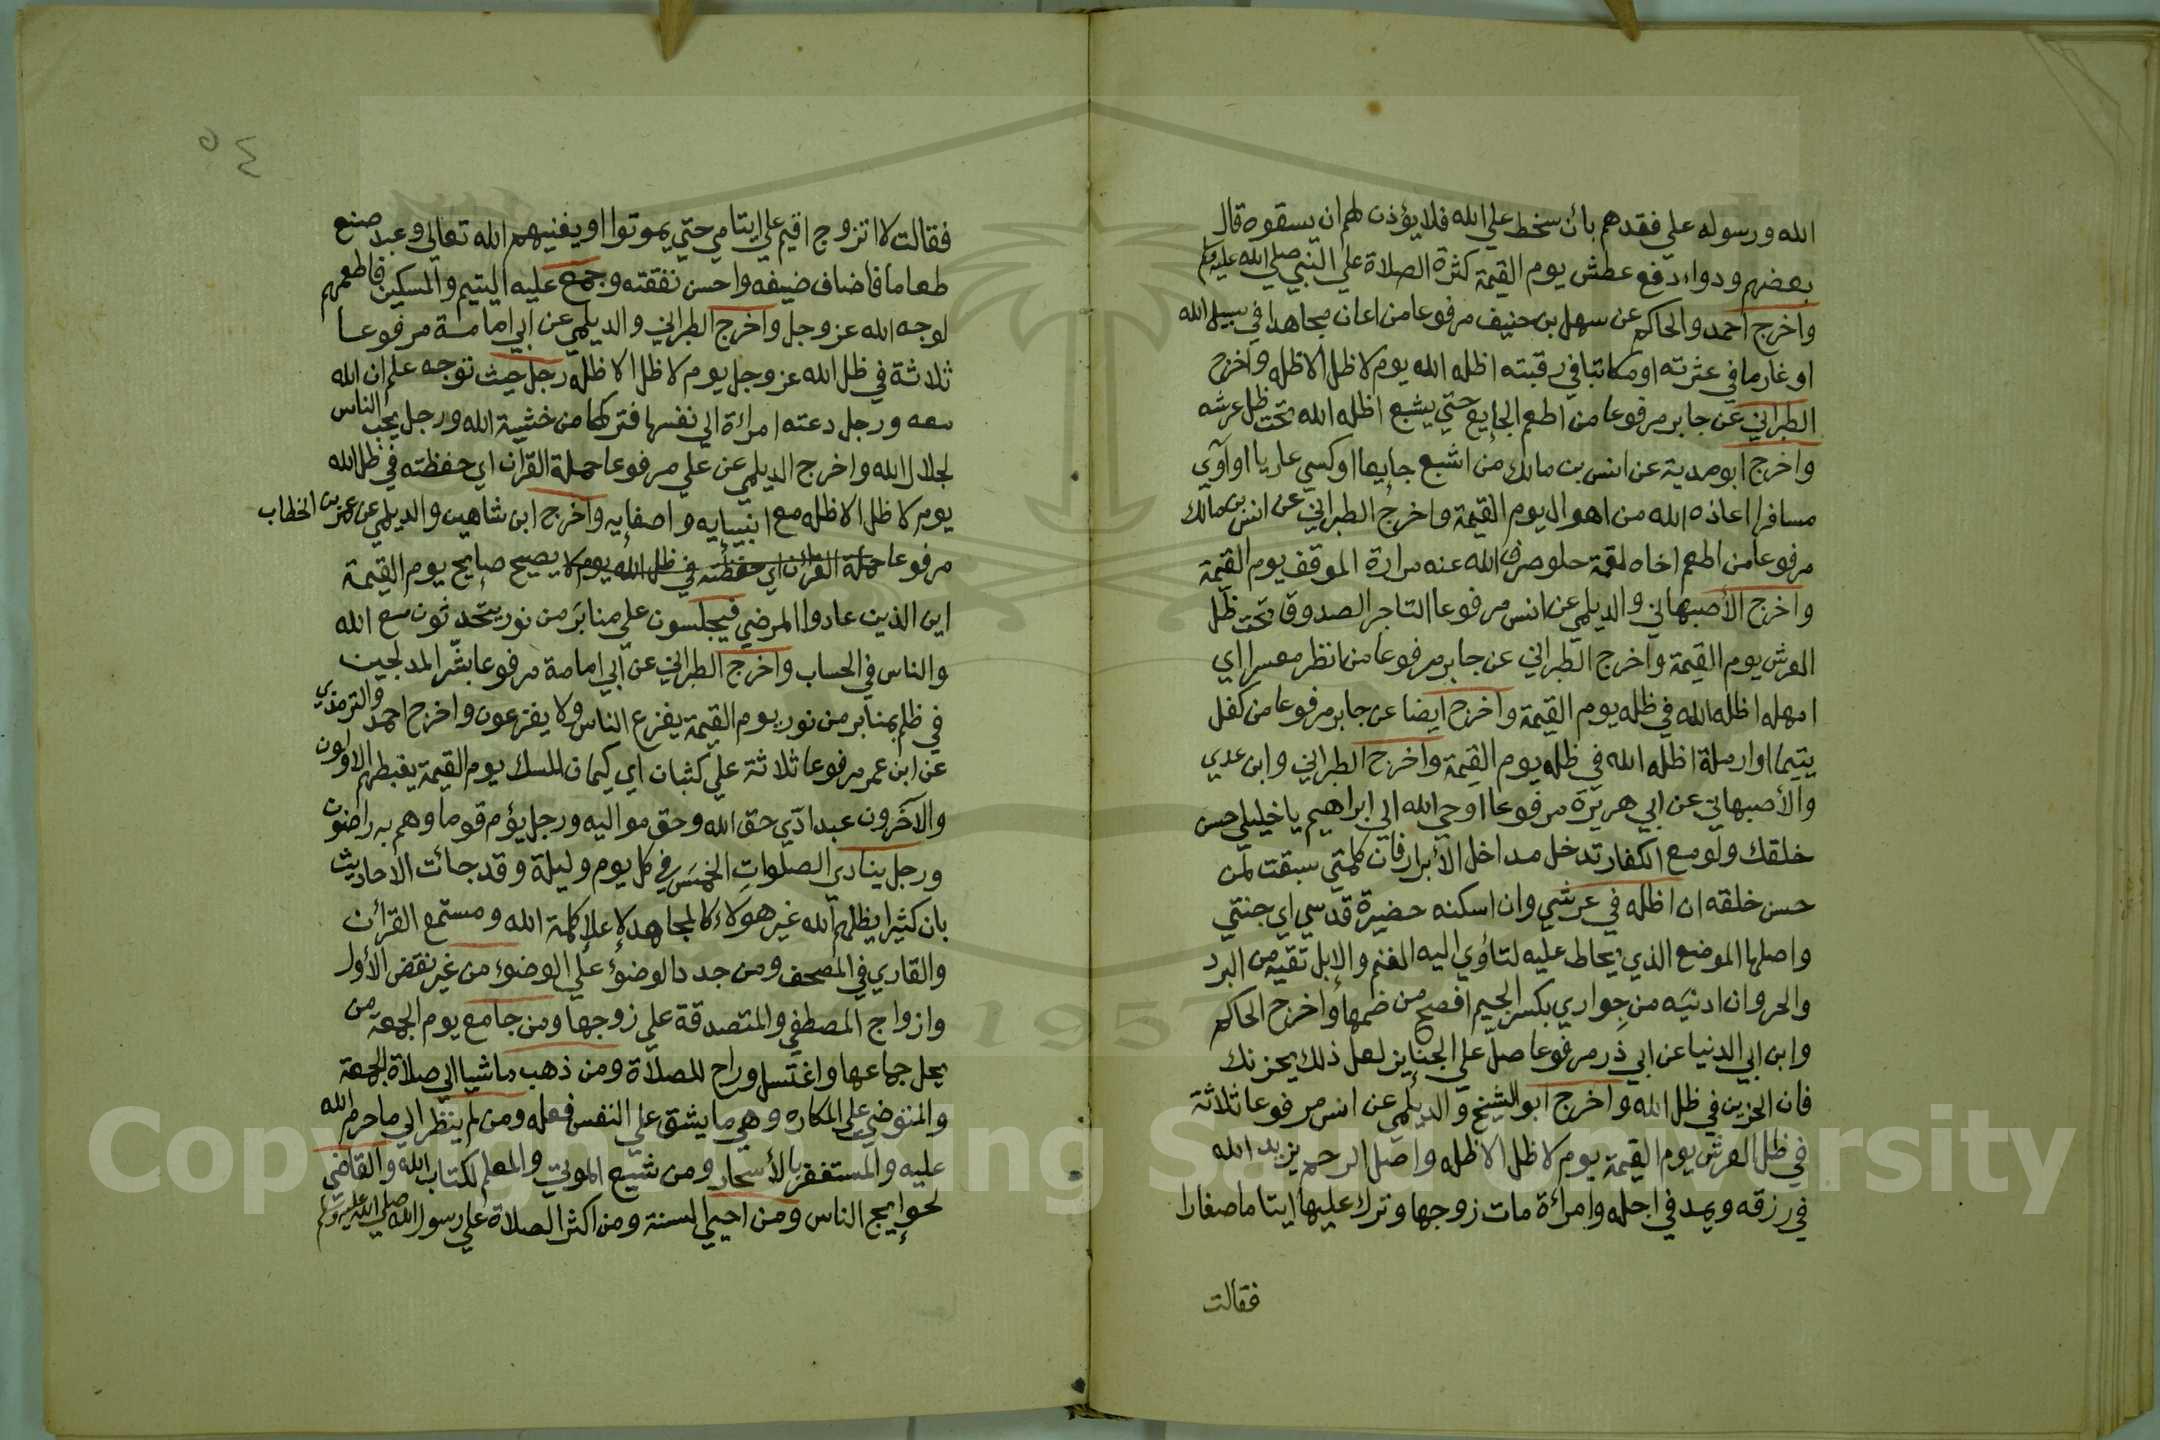 الله ورسوله علي فقدهم بأن سخط علي الله فلا يؤذن لهم ان يسقوه قال
بعضهم ودواء دفع عطش يوم القيمة كثرة الصلاة علي النبي صلي الله عليه وسلم
واخرج احمد والحاكم عن سهل بن حنيف مرفوعا من اعان مجاهدا في سبيل الله
او غارما في عثرته او مكاتبا في رقبته اظله الله يوم لا ظل الا ظله واخرج
الطبراني عن جابر مرفوعا من اطعم الجايع حتي يشبع اظله الله تحت ظل عرشه
واخرج ابو هدبة عن انس بن مالك من اشبع جايعا او كسي عاريا او آوي
مسافرا اعاذه الله من اهوال يوم القيمة واخرج الطبراني عن انس بن مالك
مرفوعا من اطعم اخاه لقمة حلو صرف الله عنه مرارة الموقف يوم القيمة
واخرج الأصبهاني والديلمي عن انس مرفوعا التاجر الصدوق تحت ظل
العرش يوم القيمة واخرج الطبراني عن جابر مرفوعا من انظر معسرا اي
امهله اظله الله في ظله يوم القيمة واخرج ايضا عن جابر مرفوعا من كفل
يتيما او ارملة اظله الله في ظله يوم القيمة واخرج الطبراني وابن عدي
والأصبهاني عن ابي هريرة مرفوعا اوحي الله الي ابراهيم يا خليلي حسن
خلقك ولو مع الكفار تدخل مداخل الأبرار فان كلمتي سبقت لمن
حسن خلقه ان اظله في عرشي وان اسكنه حضيرة قدسي اي جنتي
واصلها الموضع الذي يحاط عليه لتأوي اليه الغنم والإبل تقيه من البرد
والحر وان ادنيه من جواري بكسر الجيم افصح من ضمها واخرج الحاكم
وابن ابي الدنيا عن ابي ذر مرفوعا صل علي الجنايز لعل ذلك يحزنك
فان الحزين في ظل الله واخرج ابو الشيخ والديلمي عن انس مرفوعا ثلاثة
في ظل العرش يوم القيمة يوم لا ظل الا ظله واصل الرحم يزيد الله
في رزقه ويمد في اجله وامرأة مات زوجها وترك عليها ايتاما صغارا
فقالت
٥٤
فقالت لا اتزوج اقيم علي ايتامي حتي يموتوا او يغنيهم الله تعالي وعبد صنع
طعاما فاضاف ضيفه واحسن نفقته وجمع عليه اليتيم والمسكين فاطعمهم
لوجه الله عز وجل واخرج الطبراني والديلمي عن ابي امامة مرفوعا
ثلاثة في ظل الله عز وجل يوم لا ظل الا ظله رجل حيث توجه علم ان الله
معه ورجل دعته امرأة الي نفسها فتركها من خشية الله ورجل يحب الناس
لجلال الله واخرج الديلمي عن علي مرفوعا حملة القرآن اي حفظته في ظل الله
يوم لا ظل الا ظله مع انبيايه واصفايه واخرج ابن شاهين والديلمي عن عمر بن الخطاب
مرفوعا حملة القرآن اي حفظته في ظل الله يوم لا يصيح صايح يوم القيمة
اين الذين عادوا المرضي فيجلسون علي منابر من نور يتحدثون مع الله
والناس في الحساب واخرج الطبراني عن ابي امامة مرفوعا بشر المدلجين
في ظلم بمنابر من نور يوم القيمة يفزع الناس ولا يفزعون واخرج احمد والترمذي
عن ابن عمر مرفوعا ثلاثة علي كثبان اي كيمان المسك يوم القيمة يغبطهم الاولون
والآخرون عبد ادي حق الله وحق مواليه ورجل يؤم قوما وهم به راضون
ورجل ينادي الصلوات الخمس في كل يوم وليلة وقد جائت الاحاديث
بان كثيرا يظلهم الله غير هولاء كالمجاهد لإعلا كلمة الله ومستمع القرآن
والقاري في المصحف ومن جدد الوضوء علي الوضوء من غير نقض الأول
وازواج المصطفي والمتصدقة علي زوجها ومن جامع يوم الجمعة من
يحل جماعها واغتسل وراح للصلاة ومن ذهب ماشيا الي صلاة الجمعة
والمتوضي علي المكاره وهي ما يشق علي النفس فعله ومن لم ينظر الي ما حرم الله
عليه والمستغفر بالأسحار ومن شيع الموتي والمعلم لكتاب الله والقاضي
لحوايج الناس ومن احيي السنة ومن اكثر الصلاة علي رسول الله صلي الله عليه وسلم
1957
Copyright © King Saud University